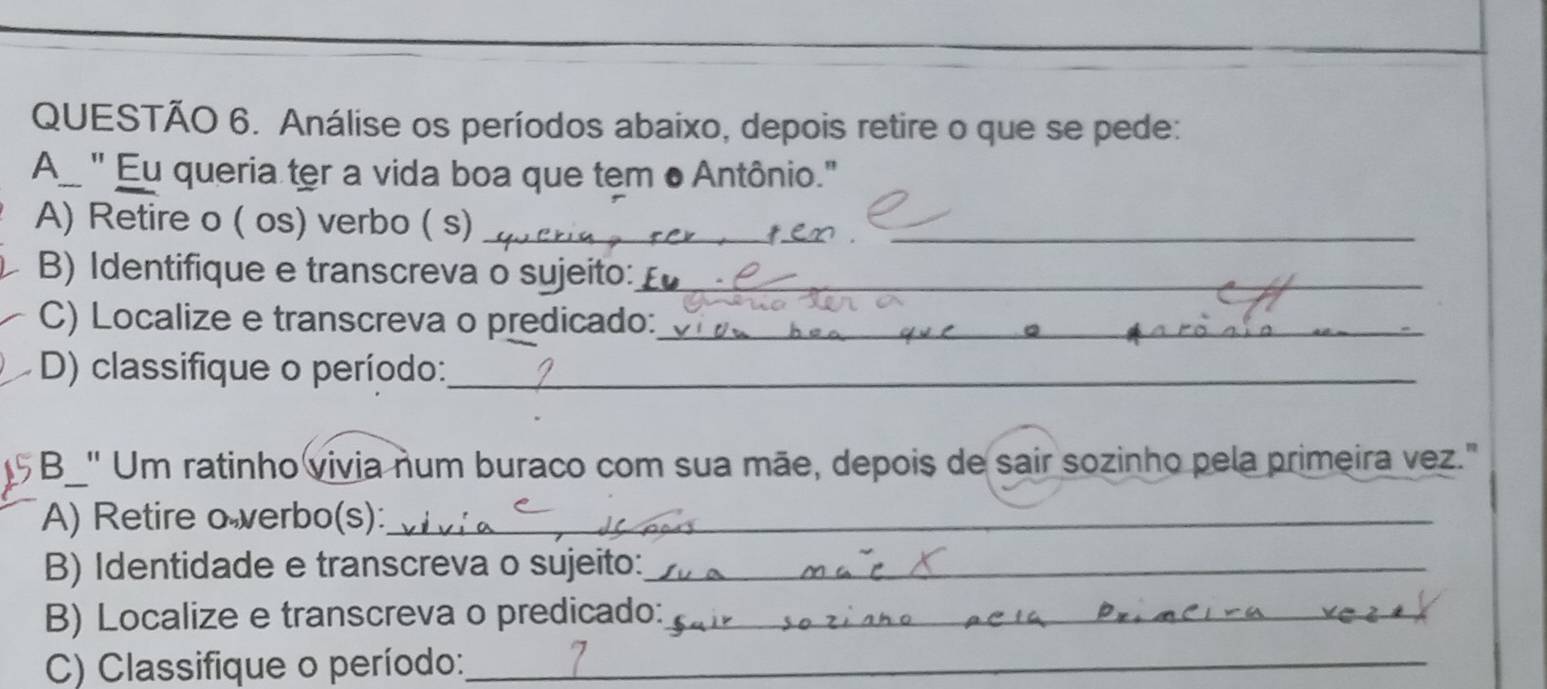 QUESTÃO 6. Análise os períodos abaixo, depois retire o que se pede:
A_ " Eu queria ter a vida boa que tem o Antônio."
A) Retire o ( os) verbo ( s) queria, ter, tem. e
B) Identifique e transcreva o sujeito: Eu. e
queria ter a
C) Localize e transcreva o predicado: vida boa que o
D) classifique o período: ?
B_ " Um ratinho vivia num buraco com sua mãe, depois de sair sozinho pela primeira vez."
A) Retire o verbo(s): vivia, depois e
B) Identidade e transcreva o sujeito: sua mãe x
B) Localize e transcreva o predicado: sair sozinho pela primeira vez
C) Classifique o período: ?